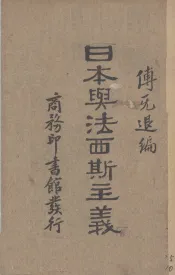 傅无退編
日本與法西斯主義
商務印書館發行